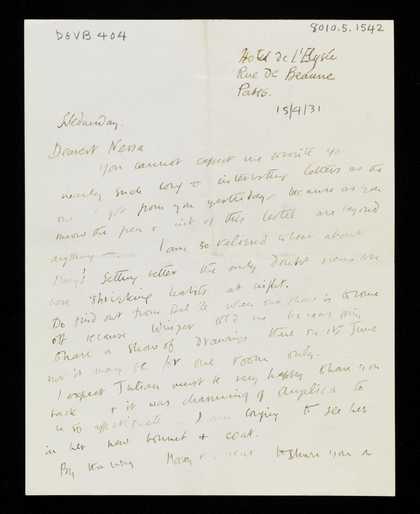 DGVB 404
8010.5.1542
Hotel de L'Elysée
Rue De Beaune
Paris.
15/4/31
Wednesday.
Dearest Nessa
You cannot expect me to write you
nearly such long & interesting letters as the
one I got from you yesterday because as you
know the pen & ink of this hotel are beyond
anything I am so relieved to hear about
getting better the only doubt
shrieking at night.
Do find out from when our show is to come
off because told me he was going
to have a show of Drawings there in June
now it may be for one room only.
I expect Julian must be very happy to have you
back & it was charming of Angelica to
be so I am longing to see her
in her new bonnet & coat.
By the way